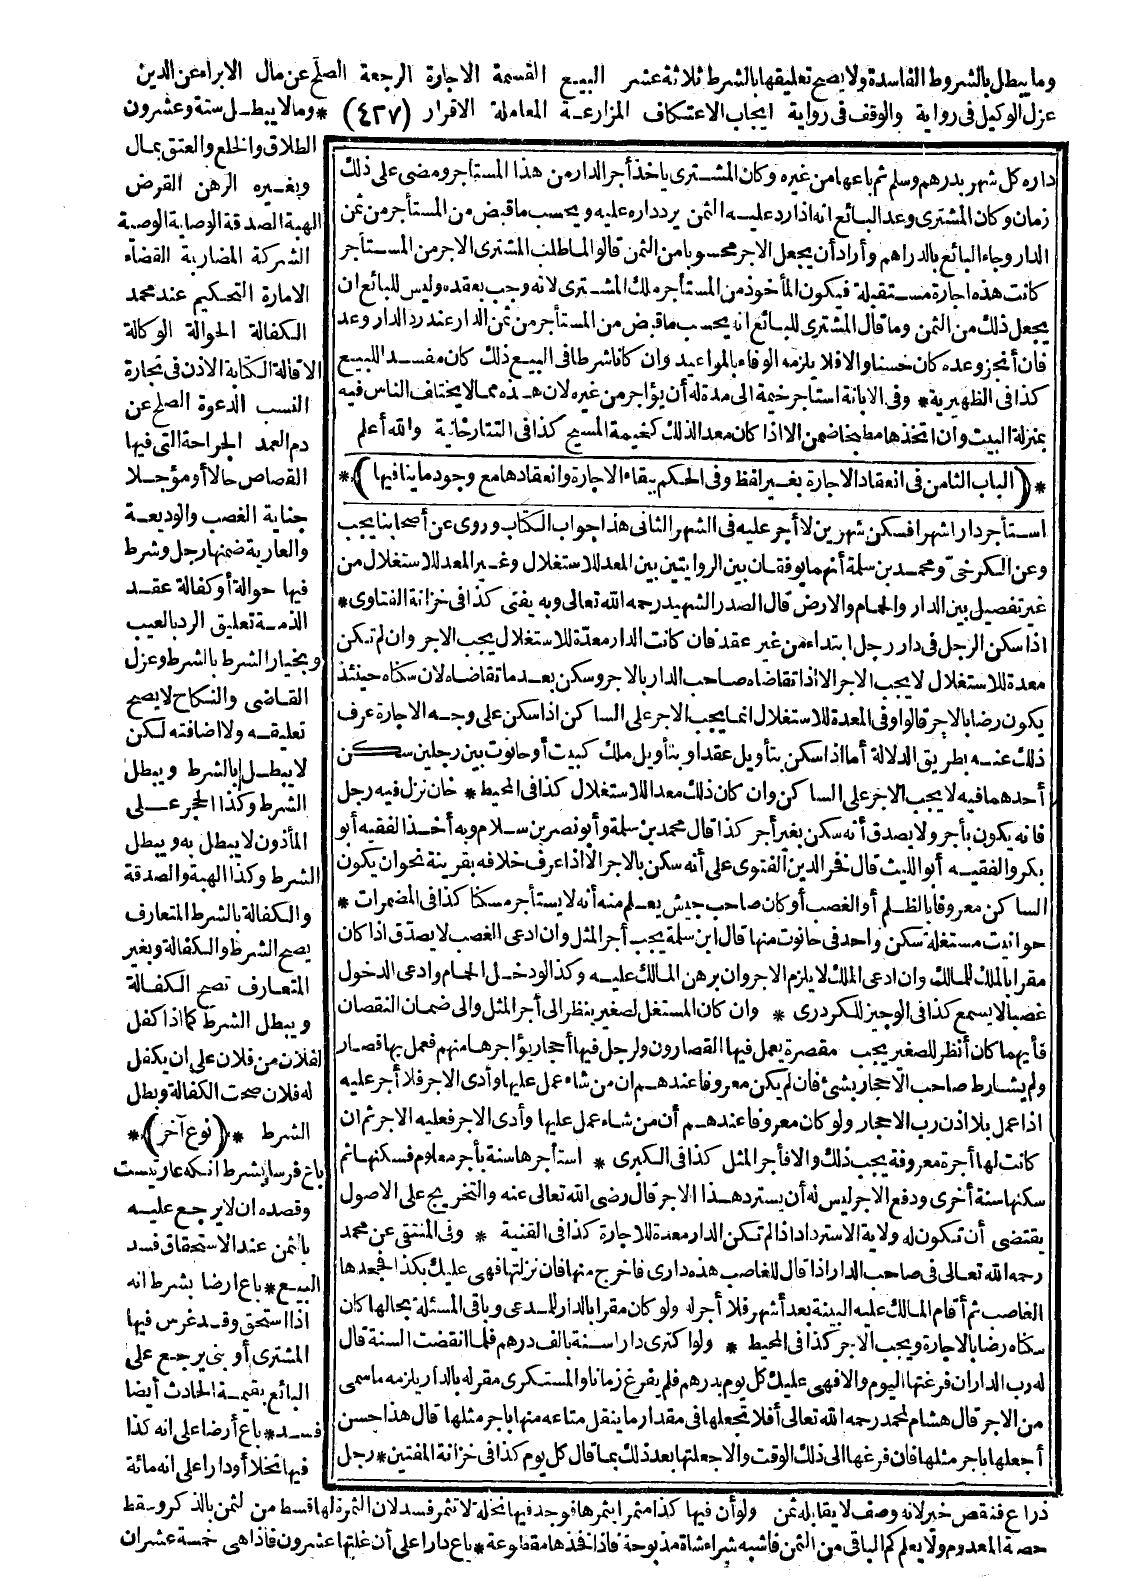 وما يبطل بالشروط الفاسدة ولا يصح تعليقها بالشرط ثلاثة عشر البيع القسمة الاجارة الرجعة الصلح عن مال الابراء عن الدين
عزل الوكيل فى رواية والوقف فى رواية ايجاب الاعتكاف المزارعة المعاملة الاقرار (٤٢٧) * وما لا يبطل ستة وعشرون
داره كل شهر بدرهم وسلم ثم باعها من غيره وكان المشترى ياخذ أجر الدار من هذا المستأجر ومضى على ذلك
زمان وكان المشترى وعد البائع انه اذا رد عليه الثمن يرد داره عليه ويحسب ما قبض من المستأجر من ثمن
الدار وجاء البائع بالدراهم وأراد أن يجعل الاجر محسوبا من الثمن قالوا لما طلب المشترى الاجر من المستأجر
كانت هذه اجارة مستقبلة فيكون المأخوذ من المستأجر ملك المشترى لانه وجب بعقده وليس للبائع ان
يجعل ذلك من الثمن وما قال المشترى للبائع انه يحسب ما قبض من المستأجر من ثمن الدار عند رد الدار وعد
فان أنجز وعده كان حسنا والا فلا يلزمه الوفاء بالمواعيد وان كانا شرطا فى البيع ذلك كان مفسدا للبيع
كذا فى الظهيرية * وفى الابانة استأجر خيمة الى مدة له أن يؤاجر من غيره لان هذه مما لا يختلف الناس فيه
بمنزلة البيت وان اتخذها مطبخا ضمن الا اذا كان معدا لذلك كخيمة المسيح كذا فى التتارخانية والله أعلم
*(الباب الثامن فى انعقاد الاجارة بغير لفظ وفى الحكم ببقاء الاجارة وانعقادها مع وجود ما ينافيها)*
استأجر دارا شهرا فسكن شهرين لا أجر عليه فى الشهر الثانى هذا جواب الكتاب وروى عن أصحابنا يجب
وعن الكرخى ومحمد بن سلمة أنهما يوفقان بين الروايتين بين المعد للاستغلال وغير المعد للاستغلال من
غير تفصيل بين الدار والحمام والارض قال الصدر الشهيد رحمه الله تعالى وبه يفتى كذا فى خزانة الفتاوى *
اذا سكن الرجل فى دار رجل ابتداء من غير عقد فان كانت الدار معدّة للاستغلال يجب الاجر وان لم تكن
معدة للاستغلال لا يجب الاجر الا اذا تقاضاه صاحب الدار بالاجر وسكن بعد ما تقاضاه لان سكناه حينئذ
يكون رضا بالاجر قالوا وفى المعدة للاستغلال انما يجب الاجر على الساكن اذا سكن على وجه الاجارة عرف
ذلك عنه بطريق الدلالة أما اذا سكن بتأويل عقد او بتأويل ملك كبيت أو حانوت بين رجلين سكن
أحدهما فيه لا يجب الاجر على الساكن وان كان ذلك معدا للاستغلال كذا فى المحيط * خان نزل فيه رجل
فانه يكون بأجر ولا يصدق أنه سكن بغير أجر كذا قال محمد بن سلمة وأبو نصر بن سلام وبه أخذ الفقيه أبو
بكر والفقيه أبو الليث قال فخر الدين الفتوى على أنه سكن بالاجر الا اذا عرف خلافه بقرينة نحو ان يكون
الساكن معروفا بالظلم أو الغصب أو كان صاحب جيش يعلم منه أنه لا يستأجر مسكنا كذا فى المضمرات *
حوانيت مستغلة سكن واحد فى حانوت منها قال ابن سلمة يجب أجر المثل وان ادعى الغصب لا يصدّق اذا كان
مقرا بالملك للمالك وان ادعى الملك لا يلزم الاجر وان برهن المالك عليه وكذا لو دخل الحمام وادعى الدخول
غصبا لا يسمع كذا فى الوجيز للكردرى * وان كان المستغل لصغير ينظر الى أجر المثل والى ضمان النقصان
فأيهما كان أنظر للصغير يجب مقصرة يعمل فيها القصارون ولرجل فيها أحجار يؤاجرها منهم فعمل بها قصار
ولم يشارط صاحب الاحجار بشئ فان لم يكن معروفا عندهم ان من شاء عمل عليها وأدى الاجر فلا أجر عليه
اذا عمل بلا اذن رب الاحجار ولو كان معروفا عندهم أن من شاء عمل عليها وأدى الاجر فعليه الاجر ثم ان
كانت لها أجرة معروفة يجب ذلك والا فأجر المثل كذا فى الكبرى * استأجرها سنة بأجر معلوم فسكنها ثم
سكنها سنة أخرى ودفع الاجر ليس له أن يسترد هذا الاجر قال رضى الله تعالى عنه والتخريج على الاصول
يقتضى أن تكون له ولاية الاسترداد اذا لم تكن الدار معدة للاجارة كذا فى القنية * وفى المنتقى عن محمد
رحمه الله تعالى فى صاحب الدار اذا قال للغاصب هذه دارى فاخرج منها فان نزلتها فهى عليك بكذا فجحدها
الغاصب ثم أقام المالك عليه البينة بعد أشهر فلا أجر له ولو كان مقرا بالدار للمدعى وباقى المسئلة بحالها كان
سكناه رضا بالاجارة ويجب الاجر كذا فى المحيط * ولو اكترى دارا سنة بالف درهم فلما انقضت السنة قال
له رب الدار ان فرغتها اليوم والا فهى عليك كل يوم بدرهم فلم يفرغ زمانا والمستكرى مقر له بالدار يلزمه ما سمى
من الاجر قال هشام لمحمد رحمه الله تعالى أفلا تجعلها فى مقدار ما ينقل متاعه منها باجر مثلها قال هذا حسن
أجعلها باجر مثلها فان فرغها الى ذلك الوقت والا جعلتها بعد ذلك بما قال كل يوم كذا فى خزانة المفتين * رجل
الطلاق والخلع والعتق بمال
وبغيره الرهن القرض
الهبة الصدقة الوصاية الوصية
الشركة المضاربة القضاء
الامارة التحكيم عند محمد
الكفالة الحوالة الوكالة
الاقالة الكتابة الاذن فى تجارة
النسب الدعوة الصلح عن
دم العمد الجراحة التى فيها
القصاص حالا أو مؤجلا
جناية الغصب والوديعة
والعارية ضمنها رجل وشرط
فيها حوالة أو كفالة عقد
الذمة تعليق الرد بالعيب
وبخيار الشرط بالشرط وعزل
القاضى والنكاح لا يصح
تعليقه ولا اضافته لكن
لا يبطل بالشرط ويبطل
الشرط وكذا الحجر على
المأذون لا يبطل به ويبطل
الشرط وكذا الهبة والصدقة
والكفالة بالشرط المتعارف
يصح الشرط والكفالة وبغير
المتعارف تصح الكفالة
ويبطل الشرط كما اذا كفل
لفلان من فلان على ان يكفل
له فلان صحت الكفالة وبطل
الشرط *(نوع آخر)*
باع فرسا بشرط انكه عاريتست
وقصده ان لا يرجع عليه
بالثمن عند الاستحقاق فسد
البيع * باع ارضا بشرط انه
اذا استحق وقد غرس فيها
المشترى أو بنى يرجع على
البائع بقيمة الحادث أيضا
فسد * باع أرضا على انه كذا
فيها نخلا أو دارا على انه مائة
ذراع فنقص خير لانه وصف لا يقابله ثمن ولو أن فيها كذا مثمرا بثمرها فوجد فيها نخلة لا تثمر فسد لان الثمرة لها قسط من الثمن بالذكر وسقط
حصة المعدوم ولا يعلم كم الباقى من الثمن فاشبه شراء شاة مذبوحة فاذا فخذها مقطوعة * باع دارا على أن غلتها عشرون فاذا هى خمسة عشر ان